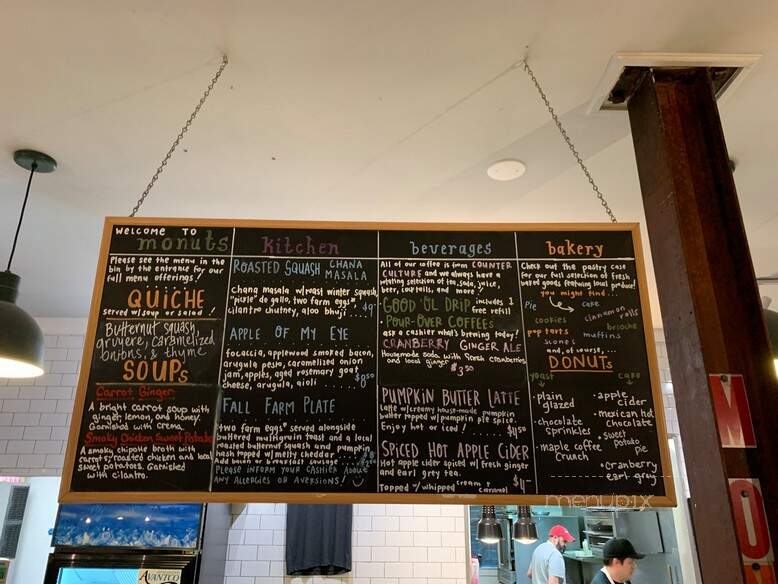 WELCOME TO
monuts
Please see the menu in the
bin by the entrance for our
full menu offerings!
QUICHE
served w/soup or salad!
Butternut squash,
gruyere, caramelized
onions, & thyme
SOUPS
Carrot Ginger
A bright carrot soup with
ginger, lemon, and honey
Garnished with crema
Smoky Chicken Sweet Potato
A smoky chipotle broth with
carrots, roasted chicken and local
sweet potatoes. Garnished
with cilantro.
kitchen
ROASTED SQUASH CHANA
MASALA
Chana masala w/roast winter squash,
"pickle" de gallo, two farm eggs*
cilantro chutney, aloo bhuji
APPLE OF MY EYE
focaccia, applewood smoked bacon,
arugula pesto, caramelized onion
jam, apples, aged rosemary goat
cheese, arugula, aioli $8.50
FALL FARM PLATE
two farm eggs* served alongside
buttered multigrain toast and a local
roasted butternut squash and pumpkin
hash topped w/melty cheddar
Add bacon or breakfast sausage
PLEASE INFORM YOUR CASHIER ABOUT
ANY ALLERGIES OR AVERSIONS!
beverages
All of our coffee is from COUNTER
CULTURE and we always have a
rotating selection of tea, soda, juice,
beer, cocktails, and more!
GOOD 'OL DRIP includes 1
free refill
• POUR-OVER COFFEES
ask a cashier what's brewing today!
CRANBERRY GINGER ALE
Housemade soda with fresh cranberries
and local ginger $3.50
PUMPKIN BUTTER LATTE
Latte w/creamy house-made pumpkin
butter topped w/pumpkin pie spice.
Enjoy hot or iced! $4.50
SPICED HOT APPLE CIDER
Hot apple cider spiced w/fresh ginger
and earl grey tea.
Topped w/whipped cream & caramel $4
bakery
Check out the pastry case
for our full selection of fresh
baked goods featuring local produce!
you might find...
Pie cake
cookies cinnamon rolls
brioche
pop tarts muffins
scones
and, of course, ...
DONUTS
yeast cake
• plain glazed
• chocolate sprinkles
• maple coffee crunch
• apple cider
• mexican hot chocolate
• sweet potato pie
• cranberry earl grey
menupix
AVANTCO